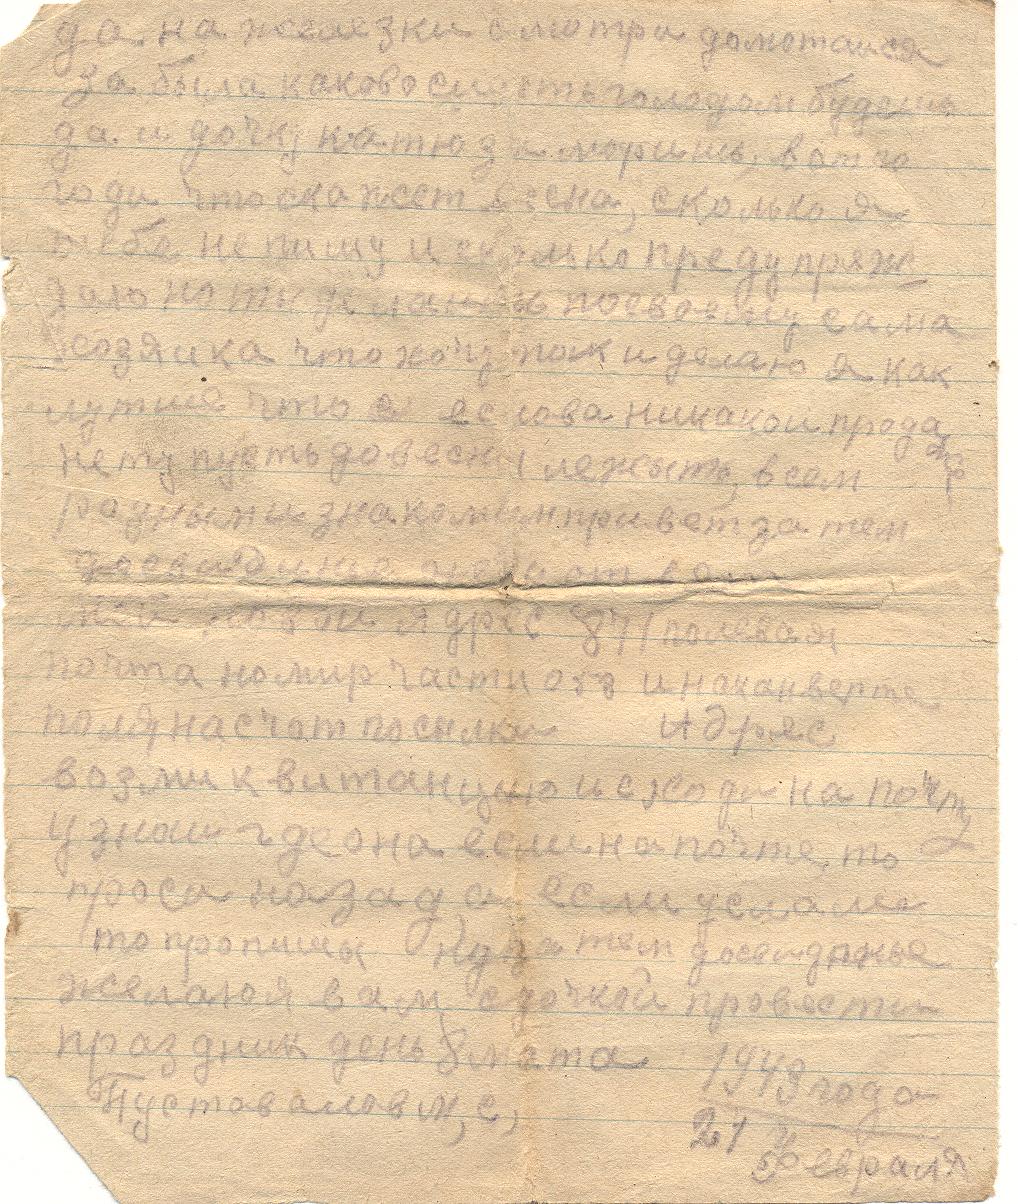 да на железки смотри домотайся
забыла каково сидеть голодом будешь
да и дочку катю заморишь, вот го
годи что скажет весна, сколько я
тебе не пишу и сколько предупряж
даю но ты делаишь посвоему сама
хозяйка что хочу тои и делаю я как
лутше что есть никакой прода
жи
нету пусть до весны лежыть, всем
родным и знакомым привет затем
досвидание
мой новый Адрес 871 полевая
почта номир части 088 и на канверте
поля насчот посылки Адряс
возми квитанцыю и сходи на почту
узнай где она если на почте то
проси назад а если услали
то пропишы Ну затем досвиданье
желаюя вам с дочкой провести
праздник день 8 мата
1943 года
Пустовалов М, С,
21 Февраля